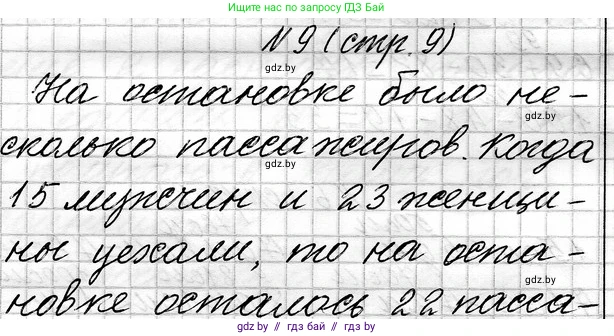 Больше решебников по запросу в поиске: Гей Дэй Бай
N 9 (стр. 9)
gdz.by
На остановке было не-
gdz.by
сколько пассажиров. Когда
gdz.by
15 мужчин и 23 женщи-
ны уехали, то на оста-
gdz.by
новке осталось 22 пасса-
gdz.by // гдз бай // гдз by